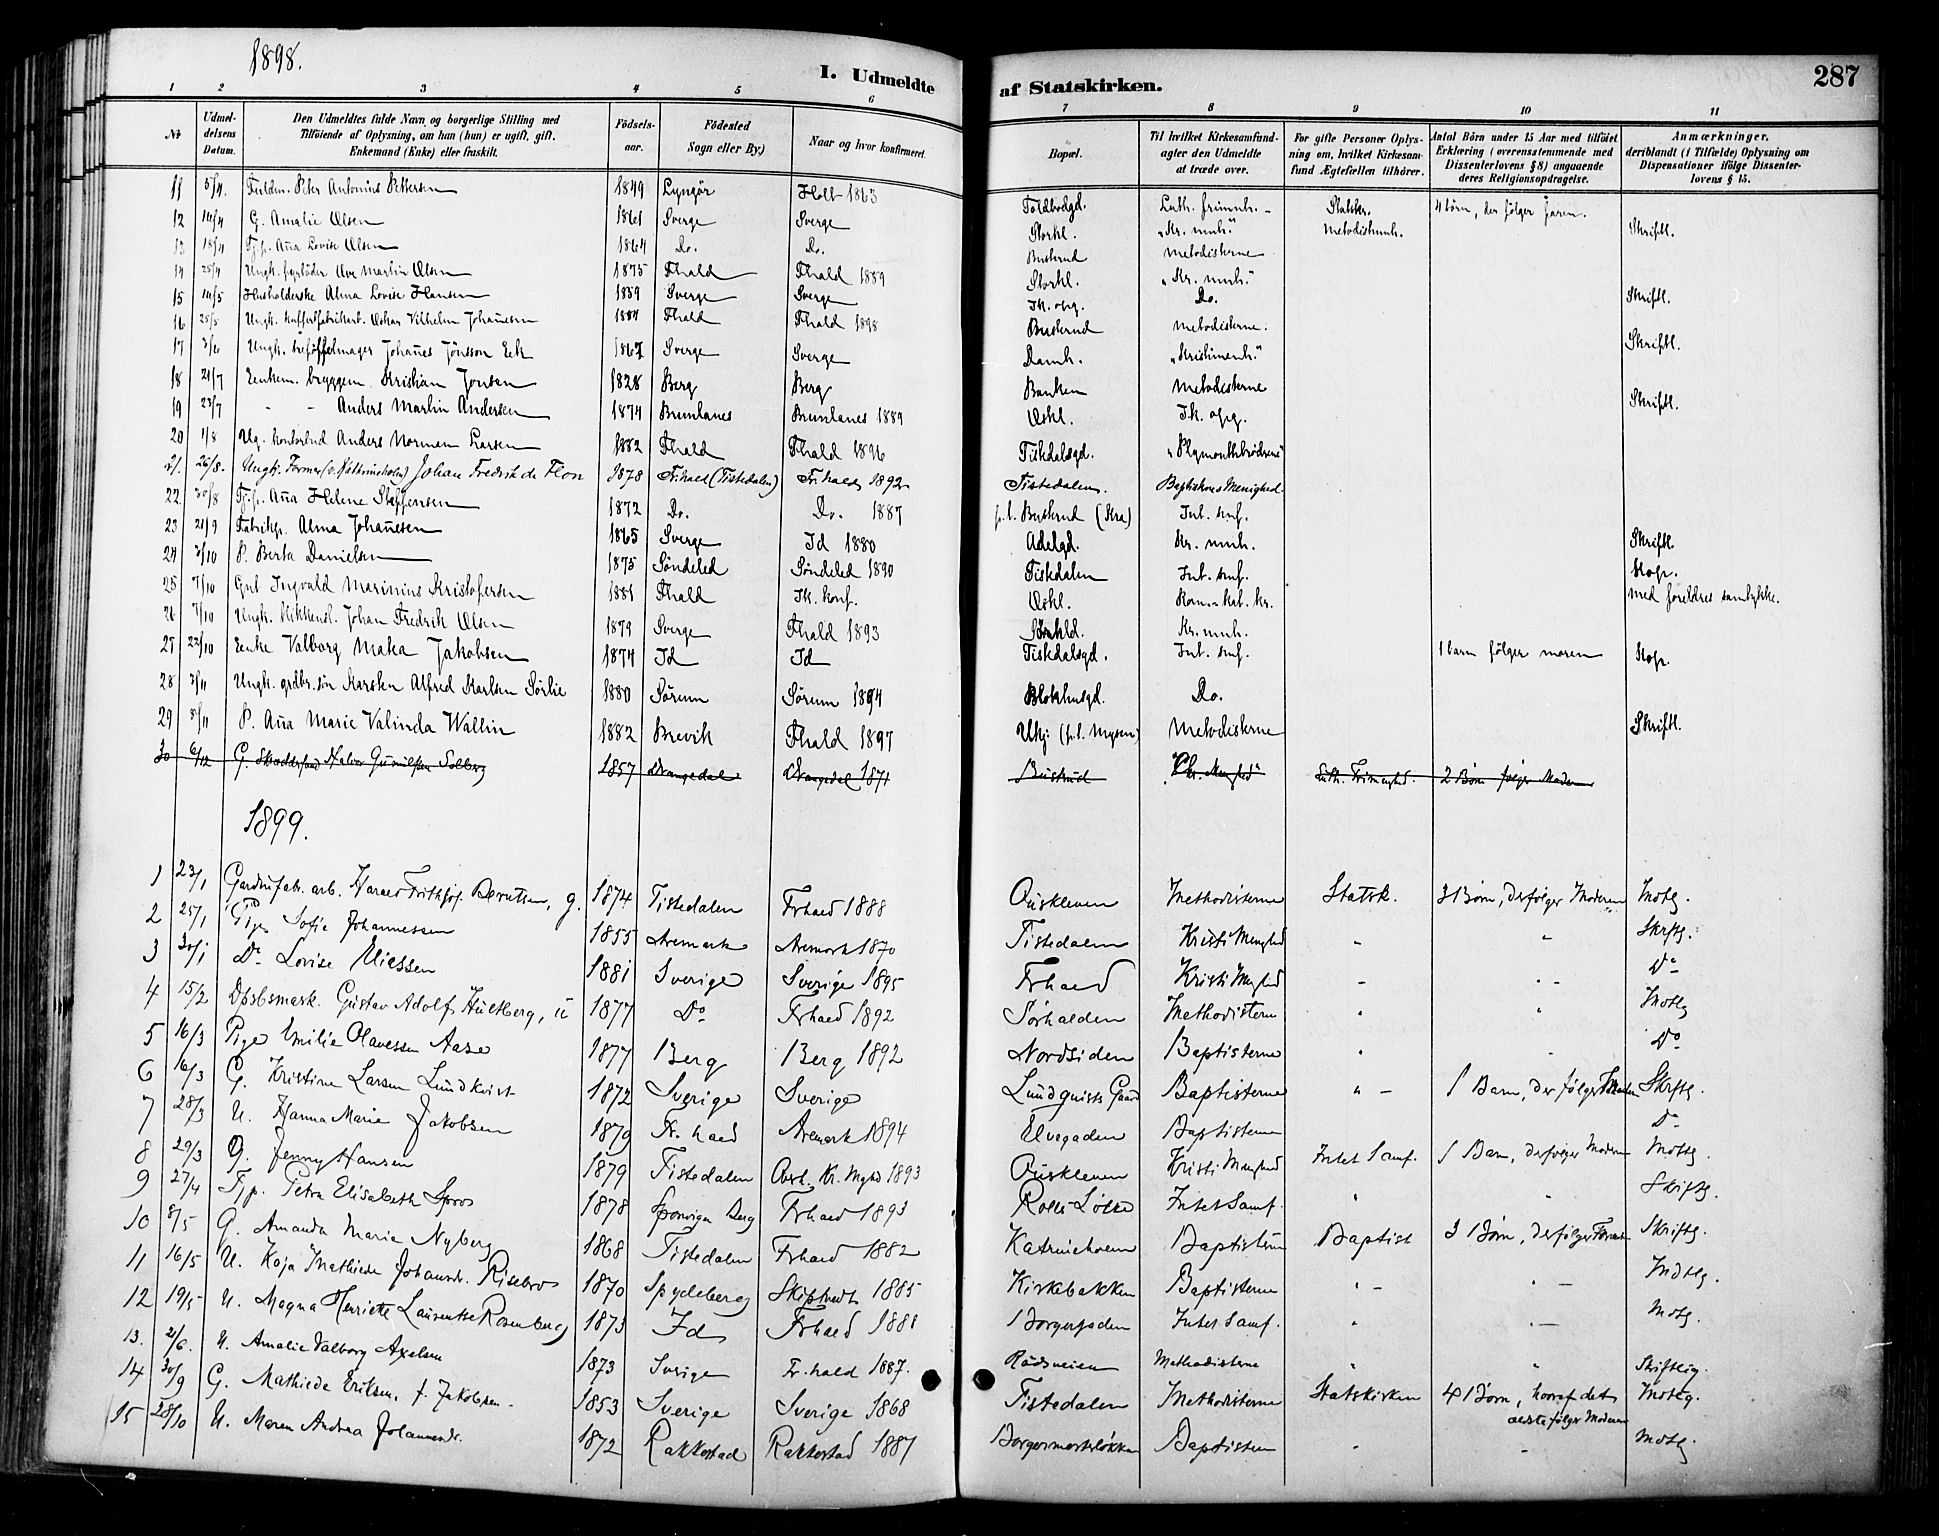 1898.
I. Udmeldte af Statskirken. 287
1 2 3 4 5 6 7 8 9 10 11
No
Udmeldelsens Datum.
Den Udmeldtes fulde Navn og borgerlige Stilling med Tilföiende af Oplysning, om han (hun) er ugift, gift, Enkemand (Enke) eller fraskilt.
Födselsaar.
Födested Sogn eller By.)
Naar og hvor konfirmeret.
Bopæl.
Til hvilket Kirkesamfund agter den Udmeldte at træde over.
For gifte Personer Oplysning om, hvilket Kirkesamfund Ægtefællen tilhörer.
Antal Börn under 15 Aar med tilföiet Erklæring (overensstemmende med Dissenterlovens § 8) angaaende deres Religionsopdragelse.
Anmærkninger. deriblandt (i Tilfælde) Oplysning om Dispensationer ifölge Dissenterlovens § 15.
11 5/4. Peter Antonius Pettersen 1849 Lyngör Holt 1863 Toldbodgd. Luth. frimnh. Statskr. 4 börn, der fölger faren.
12 14/4 G. Amalie Olsen 1861 Sverge Sverge Storkl. „Kr. mnh." Metodistmnh. Skriftl.
13 18/4 Tj.p. Aña Lovise Olsen 1864 Do. Do. Busterud Metodisterne
14 25/4 Ungk. Ove Martin Olsen 1875 Fhald Fhald 1889 Storkl. „Kr. mnh."
15 14/5 Husholderske Alma Lovise Hansen 1859 Sverge Sverge Ik. opg. Do. Skriftl.
16 25/5 Ungk. Oskar Vilhelm Johañesen 1884 Fhald Fhald 1898 Busterud Metodisterne.
17 3/6 Ungk. Johañes Jönsson Eek 1867 Sverge Sverge Damh. „Kristimenh." Skriftl.
18 21/7 Enkem. bryggem. Kristian Jonsen 1828 Berg Berg Banken Metodisterne
19 23/7 - - Anders Martin Andersen 1874 Brunlanes Brunlanes 1889 Oskl. Ik. opg. Skriftl.
20 1/8 Ug. kontorbud Anders Normann Larsen 1882 Fhald Fhald 1896 Tistdalsgd. „Plymouthbrödrene"
21. 26/8. Ungk. Former Johan Fredrik de Flon 1878 Fr.hald (Tistedalen) Fr.hald 1892 Tistedalen. Baptisternes Menighed.
22 30/8 Tj.p. Aña Helene Steffensen 1872 Do. Do. 1887 Busterud (Kra) Int. smf.
23 21/9 Fabrikp. Alma Johañesen 1865 Sverge Id 1880 Adelgd. Kr. mnh. Skriftl.
24 3/10 P. Berta Danielsen 1875 Söndeled Söndeled 1890 Tistdalen Int. smf. Skofr.
25 7/10 Gut Ingvald Marinius Kristofersen 1881 Fhald Ik. konf. Oskl. Rom.-kat. kr. med foreldres samtykke.
26 7/10 Ungk. Johan Fredrik Olsen 1879 Sverge Fhald 1893 Sörhld. Kr. mnh.
27 22/10 Enke Valborg Maka Jakobsen 1874 Id Id Tistdalsgd. Int. smf. 1 barn fölger moren Skofr.
28 3/11 Ungk. grdbr.sön Karsten Alfred Karlsen Sörlie 1880 Sörum Sörum 1894 Blokhusgd. Do.
29 8/11 P. Aña Marie Valinda Wallin 1882 Brevik Fhald 1897 (Mysen) Metodisterne Skriftl.
30 6/12 G. Halvor Gunulfsen Solberg 1857 Drangedal Drangedal 1871 Busterud „Chr. Menghed" Luth. Frimenghd. 2 Börn fölger Moderen
1899.
1 23/1 arb. Harald Frithjof Berntsen, g. 1874 Tistedalen Frhald 1888 Ouskleven Methodisterne Statsk. 3 Börn, der følger Moderen Mdtlg.
2 25/1 Pige Sofie Johannessen 1855 Aremark Aremark 1870 Tistedalen Kristi Menghed „ „ Skrftg.
3 30/1 Do Lovise Nielssen 1881 Sverige Sverige 1895 Frhald Kristi Menghed - „ - Do
4 15/2 Gustav Adolf Hultberg, u 1877 Do Frhald 1892 Sørhalden Methodistern „ „ Mdtlg
5 16/3 Pige Emilie Olavessen Aase 1877 Berg Berg 1892 Nordsiden Baptisterne „ Do
6 16/3 G. Kristine Larsen Lundkvist 1872 Sverige Sverige Lundquists Gaard Baptisterne „ - 1 Barn, der følger Moderen Skrftg.
7 28/3 U. Hanna Marie Jakobsen 1879 Fr.hald Aremark 1894 Elvegaden Baptisterne Do
8 29/3 G. Jenny Hansen 1879 Tistedalen Kr. Mghd 1893 Ouskleven Kristi Menghed Intet Samf. 1 Barn, der følger Moderen Mdtlg.
9 27/4 Tjp. Petra Elisabeth Spros 1878 Sponvigen Berg Frhald 1893 Rolls-Løkke Intet Samf. „ „ Skriftg.
10 8/5 G. Amanda Marie Nyberg 1868 Tistedalen Frhald 1882 Katrineholm Baptisterne Baptist 3 Børn, der følger Forældr Skriftg.
11 16/5 U. Kaja Mathilde Johansdr. Risebro 1870 Spydeberg Skiptvedt 1885 Kirkebakken Baptisterne „ - „ - Mdtlg.
12 19/5 U. Magna Henriette Laurentse Rosenberg 1873 Id Frhald 1888 Borgergaden Intet Samf. „ „ - Mdtlg.
13. 2/6. U. Amalie Valborg Axelsen 1873 Sverige Fr.hald 1887. Rødsveien Methodisterne „ „ Skriftlig.
14 30/9 G. Mathilde Eriksen, f. Jakobsen. 1853 Sverige Sverige 1868 Tistedalen Methodisterne Statskirken 4 Børn, hvoraf det ældste følger Moderen Mdtlg.
15 28/10 U. Maren Andrea Johannesdr. 1872 Rakkestad Rakkestad 1887 Borgermesterløkken Baptisten „ „ Mdtlg